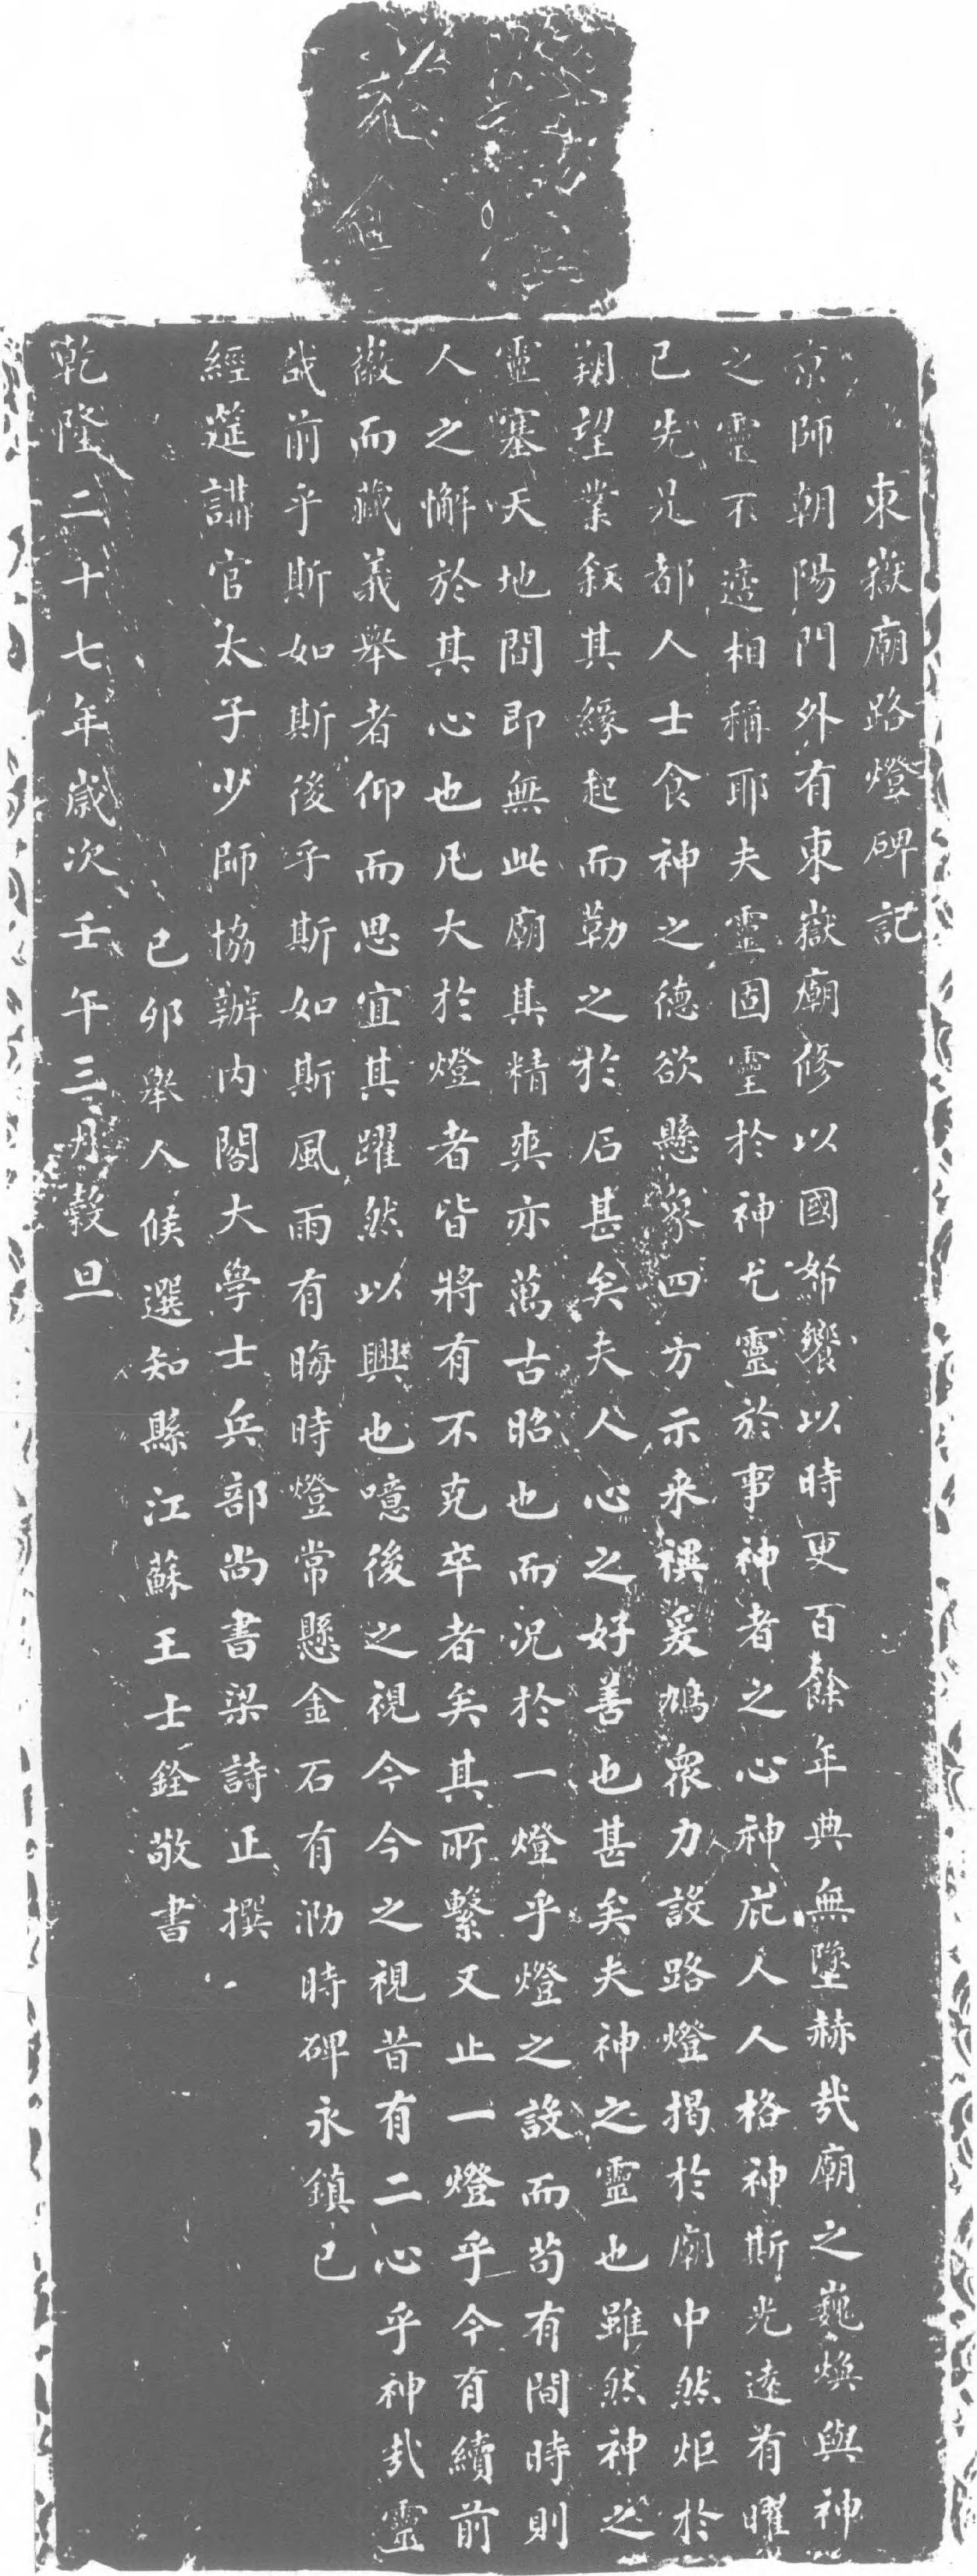 東嶽廟路燈碑記
京師朝陽門外有東嶽廟修以國帑饗以時更百餘年典無墜赫哉廟之巍煥與神
之靈不遼相稱耶夫靈固靈於神尤靈於事神者之心神庇人人格神斯光遠有曜
已先是都人士食神之德欲懸象四方示來禩爰鳩眾力設路燈揭於廟中然炬於
朔望業叙其緣起而勒之於石甚矣夫人心之好善也甚矣夫神之靈也雖然神之
靈塞天地間即無此廟其精爽亦萬古昭也而況於一燈乎燈之設而苟有間時則
人之懈於其心也凡大於燈者皆將有不克卒者矣其所繫又止一燈乎今有續前
徽而藏義舉者仰而思宜其躍然以興也噫後之視今今之視昔有二心乎神哉靈
哉前乎斯如斯後乎斯如斯風雨有晦時燈常懸金石有泐時碑永鎮已
經筵講官太子少師協辦內閣大學士兵部尚書梁詩正撰
己卯舉人候選知縣江蘇王士銓敬書
乾隆二十七年歲次壬午三月穀旦